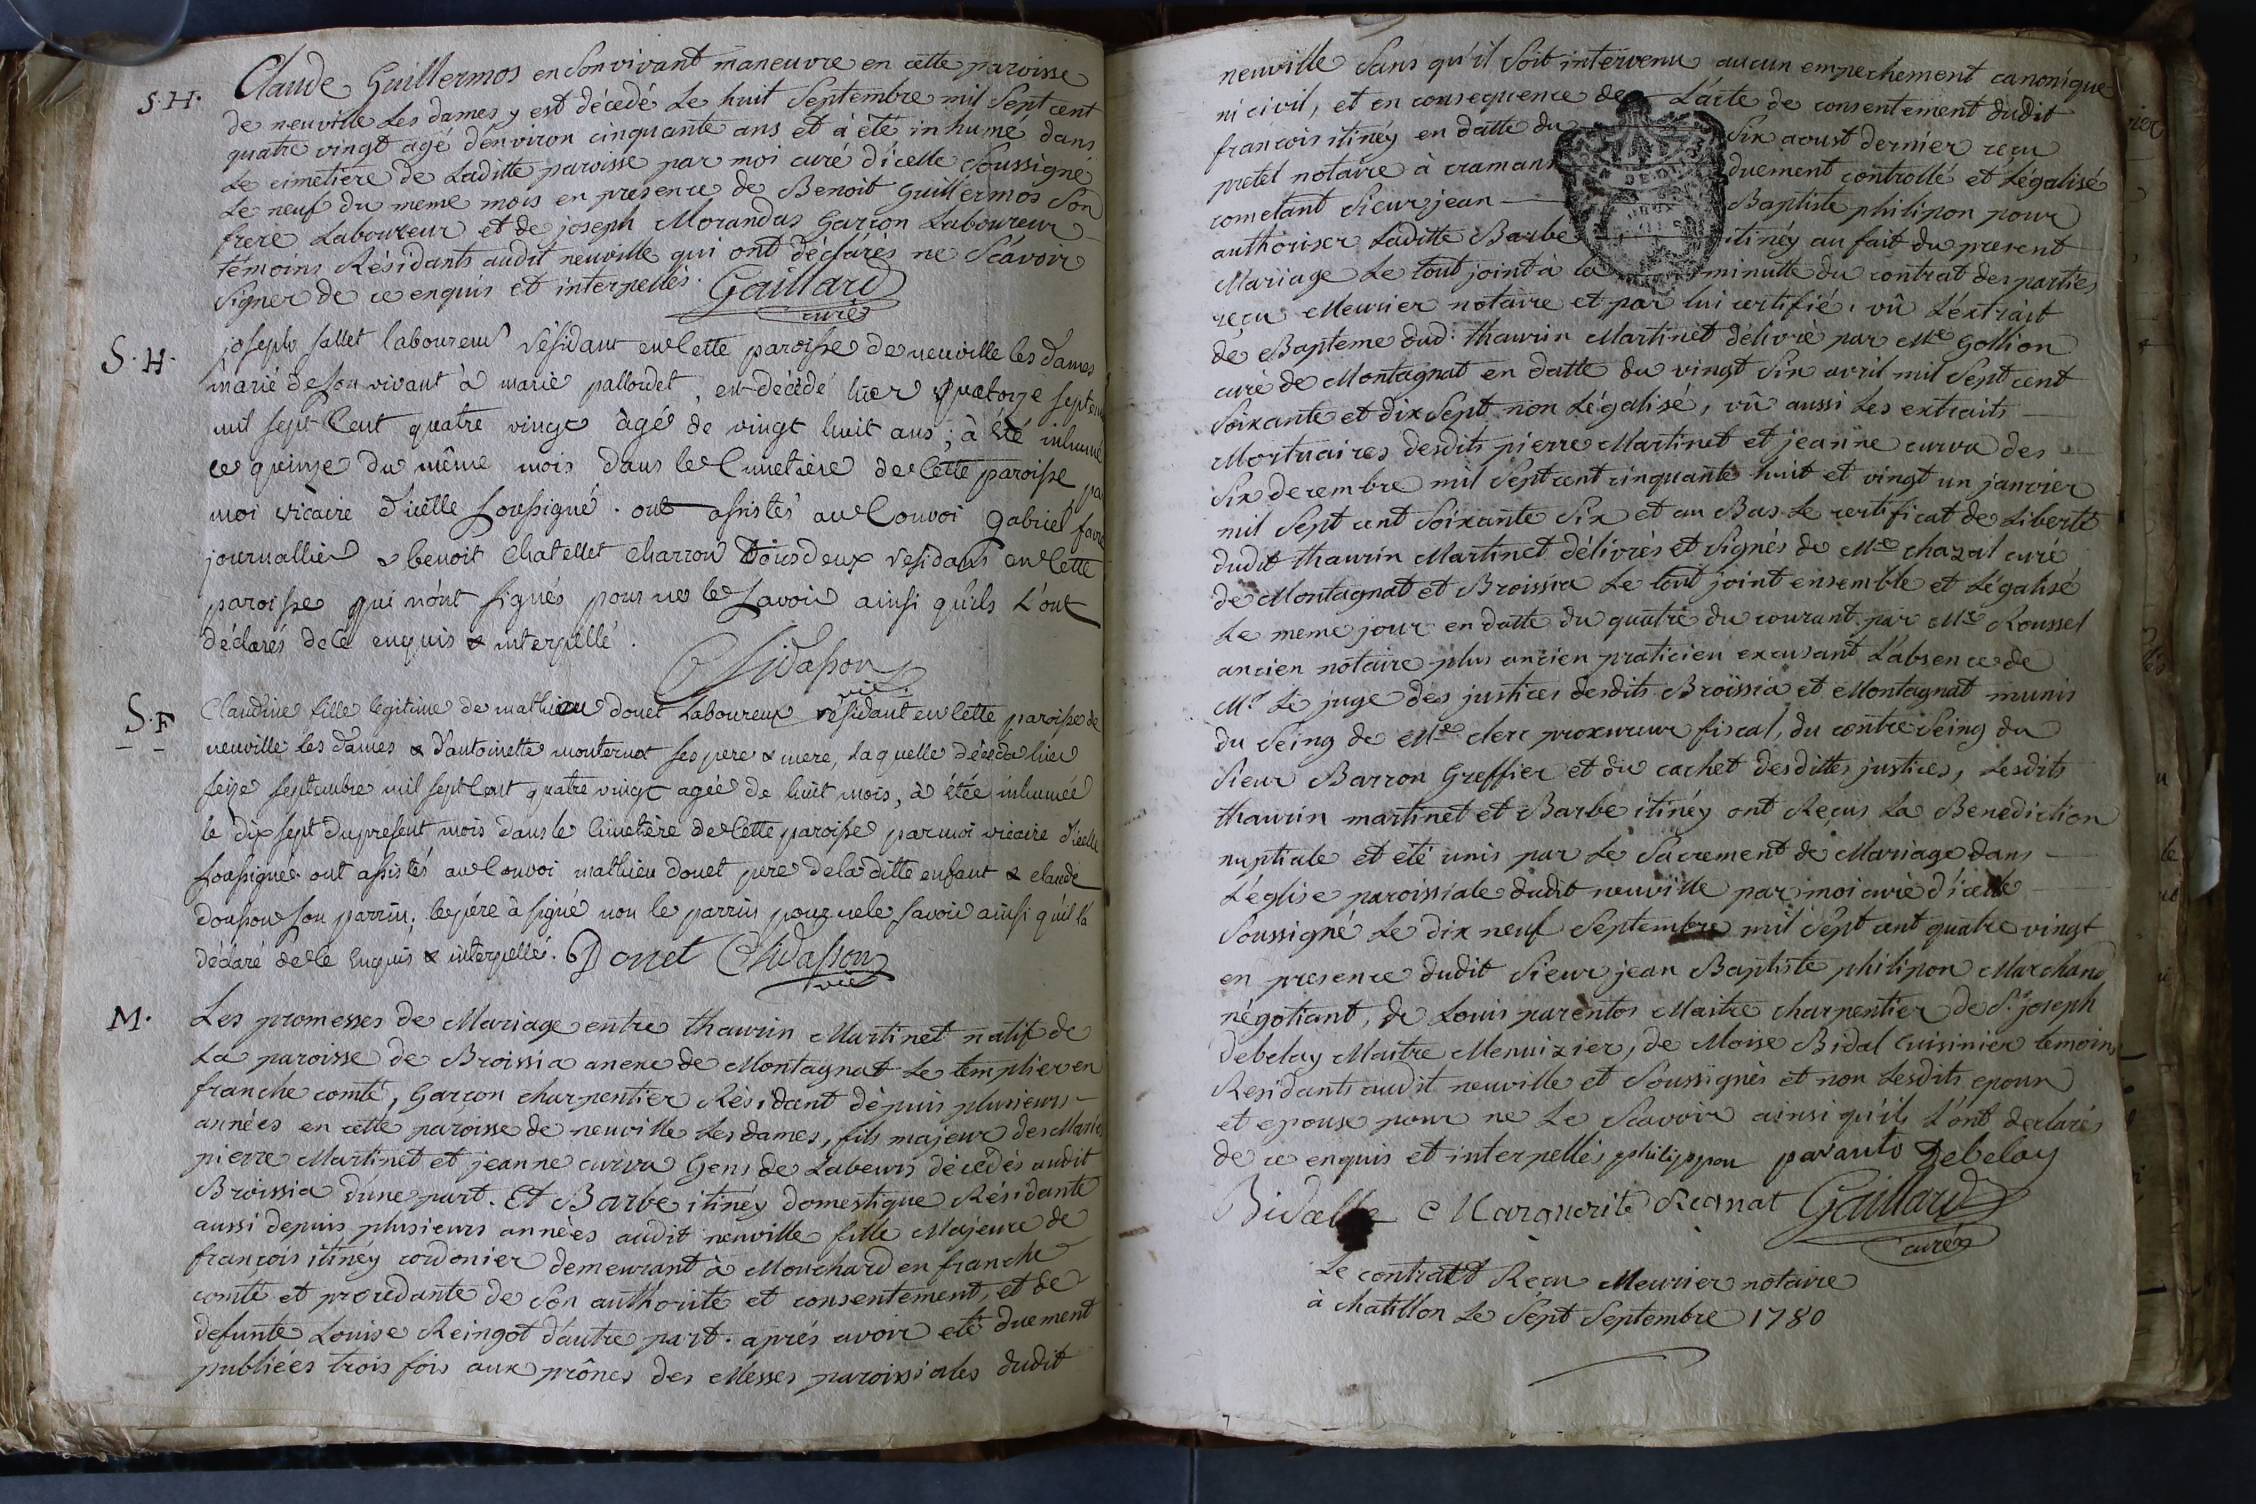 S.H.
Claude Guillermos en son vivant maneuvre en cette paroisse
de neuville Les dames y est décedé Le huit Septembre mil Sept cent
quatre vingt agé d'environ cinquante ans et à été inhumé dans
Le cimetiere de Laditte paroisse par moi curé d'icelle Soussigné
Le neuf du meme mois en presence de Benoit Guillermos Son
frere Laboureur et de joseph Morandas Garçon Laboureur
témoins Résidants audit neuville qui ont déclarés ne Sçavoir
Signer de ce enquis et interpellés. Gaillard
curé
S.H.
joseph sallet laboureur résidant en cette paroisse de neuville les dames
marié de son vivant à marie pallordet, est décédé hier quatorze septem
mil sept cent quatre vingt âgé de vingt huit ans; à été inhumé
ce quinze du même mois dans le cimetière de cette paroisse par
moi vicaire d'icelle soussigné. ont assistés au convoi gabriel favre
journallier & benoit chatellet charron tous deux résidans en cette
paroisse qui n'ont signés pour ne le savoir ainsi qu'ils l'ont
déclarés de ce enquis & interpellé.
vic.
S.F
Claudine fille legitime de mathieu donet Laboureur résidant en cette paroisse de
neuville les dames & d'antoinette monternot ses pere & mere, laquelle décéda hier
seize septembre mil sept cent quatre vingt agée de huit mois, à été inhumée
le dix sept du présent mois dans le cimetière de cette paroisse par moi vicaire d'icelle
soussigné. ont assistés au convoi mathieu donet pere de la ditte enfant & claude
donson son parrin; le père à signé non le parrin pour ne le savoir ainsi qu'il l'a
déclaré de ce enquis & interpellé. Donet
vic
M.
Les promesses de Mariage entre thaurin Martinet natif de
La paroisse de Broissia anexe de Montagnat Le templier en
franche comté, Garçon charpentier Résidant dépuis plusieurs
années en cette paroisse de neuville Les dames, fils majeur des Mariés
pierre Martinet et jeanne curva Gens de Labeurs décedés audit
Broissia d'une part. Et Barbe itinéy domestique Résidante
aussi depuis plusieurs années audit neuville fille Majeure de
françois itinéy cordonier demeurant à Mouchard en franche
comté et procedante de Son authorité et consentement, et de
defunte Louise Reingot d'autre part. aprés avoir eté duement
publiées trois fois aux prônes des Messes paroissiales dudit
neuville Sans qu'il Soit intervenu aucun empechement canonique
ni civil, et en consequence de L'acte de consentement dudit
francois itinéy en datte du Six aoust dernier reçu
pretet notaire à cramans duement controllé et Légalisé
cometant Sieur jean Baptiste philipon pour
authoriser Laditte Barbe itinéy au fait du present
Mariage Le tout joint à la minutte du contrat des parties
reçu Meurier notaire et par lui certifié. vû L'extrait
de Bapteme dud: thaurin Martinet délivré par Me Gollion
curé de Montagnat en datte du vingt Six avril mil Sept cent
Soixante et dix Sept non Légalisé, vû aussi Les extraits
Mortuaires desdits pierre Martinet et jeanne curva des
Six decembre mil Sept cent cinquante huit et vingt un janvier
mil Sept cent Soixante Six et au Bas Le certificat de Liberté
dudit thaurin Martinet délivrés et Signés de Me chazal curé
de Montagnat et Broissia Le tout joint ensemble et Légalisé
Le meme jour en datte du quatre du courant par Me Roussel
ancien notaire plus ancien praticien excusant L'absence de
Mr Le juge des justices desdits Broissia et Montagnat munis
du Seing de Me clerc procureur fiscal, du contre Seing du
Sieur Barron Greffier et du cachet desdittes justices, Lesdits
thaurin martinet et Barbe itinéy ont Reçus La Benediction
nuptiale et été unis par Le Sacrement de Mariage dans
L'église paroissiale dudit neuville par moi curé d'icelle
Soussigné Le dix neuf Septembre mil Sept cent quatre vingt
en presence dudit Sieur jean Baptiste philipon Marchand
négotiant, de Louis parentos Maitre charpentier de St joseph
Debelay Maitre Menuizier, de Moise Bidal Cuisinier temoins
Residants audit neuville et Soussignés et non Lesdits epoux
et epouse pour ne Le Scavoir ainsi qu'ils L'ont declarés
de ce enquis et interpellés philippon paranto Debelay
Marguerite Regnat Gaillard
curé
Le contratt Reçu Meurier notaire
à chatillon Le Sept Septembre 1780